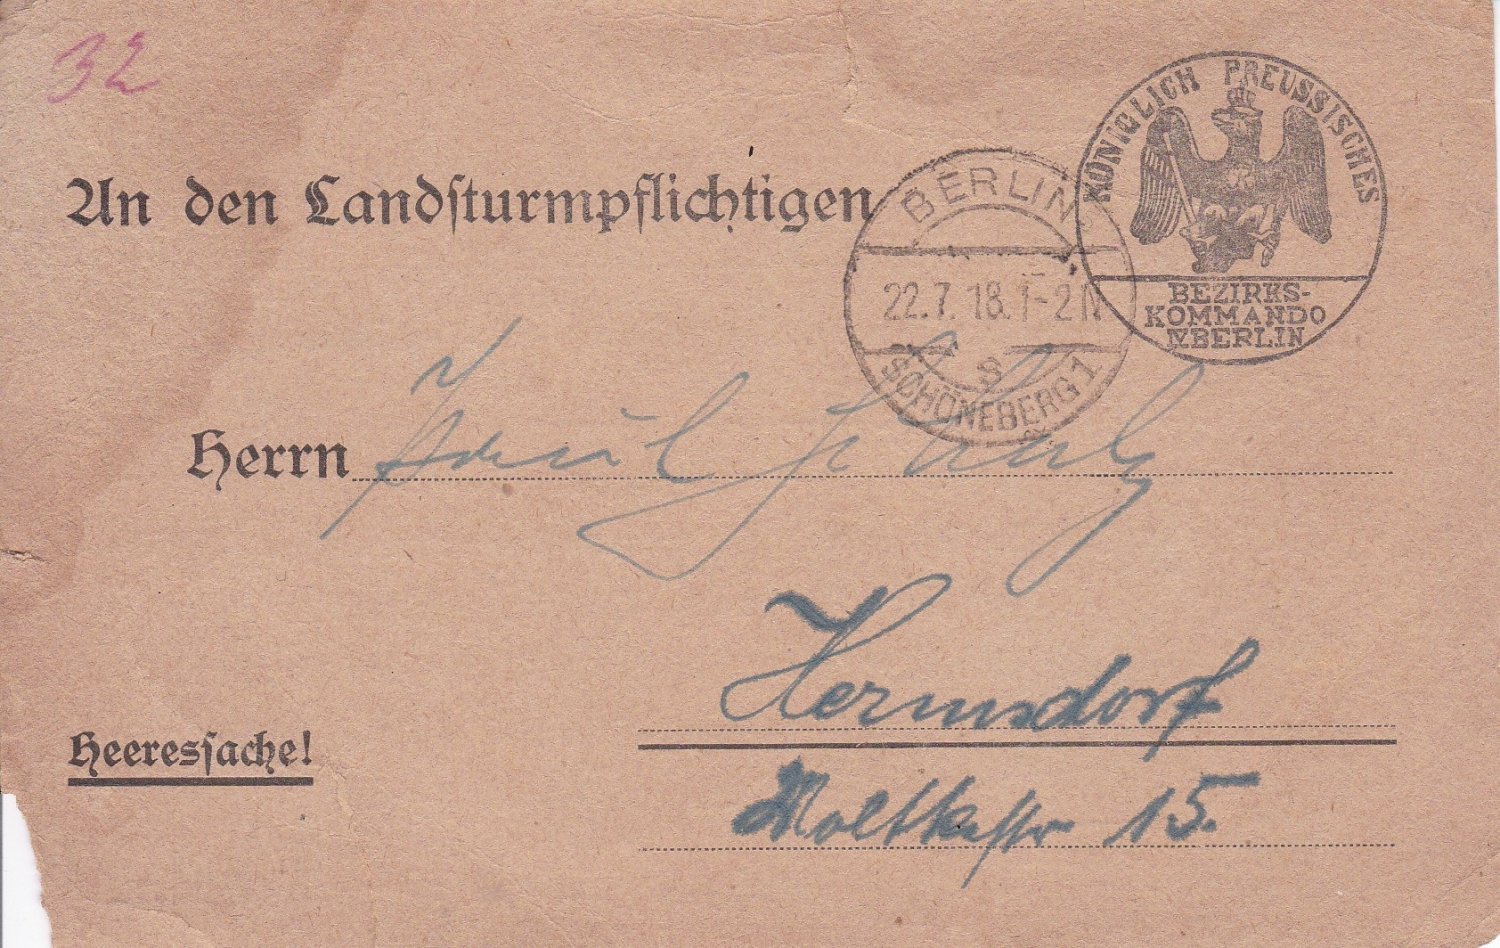 32
KÖNIGLICH PREUSSISCHES
BEZIRKS-
KOMMANDO
IV BERLIN
An den Landsturmpflichtigen
BERLIN
22.7.18. 1-2 N
S
SCHÖNEBERG 1
Herrn
Hermsdorf
Heeressache!
Moltkestr 15.